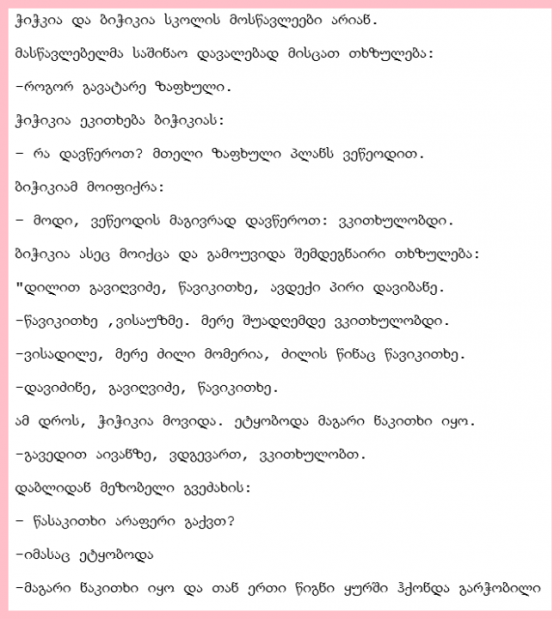 ჭიჭკია და ბიჭიკია სკოლის მოსწავლეები არიან.
მასწავლებელმა საშინაო დავალებად მისცათ თხზულება:
-როგორ გავატარე ზაფხული.
ჭიჭიკია ეკითხება ბიჭიკიას:
- რა დავწეროთ? მთელი ზაფხული პლანს ვეწეოდით.
ბიჭიკიამ მოიფიქრა:
- მოდი, ვეწეოდის მაგივრად დავწეროთ: ვკითხულობდი.
ბიჭიკია ასეც მოიქცა და გამოუვიდა შემდეგნაირი თხზულება:
"დილით გავიღვიძე, წავიკითხე, ავდექი პირი დავიბანე.
-წავიკითხე ,ვისაუზმე. მერე შუადღემდე ვკითხულობდი.
-ვისადილე, მერე ძილი მომერია, ძილის წინაც წავიკითხე.
-დავიძინე, გავიღვიძე, წავიკითხე.
ამ დროს, ჭიჭიკია მოვიდა. ეტყობოდა მაგარი ნაკითხი იყო.
-გავედით აივანზე, ვდგევართ, ვკითხულობთ.
დაბლიდან მეზობელი გვეძახის:
- წასაკითხი არაფერი გაქვთ?
-იმასაც ეტყობოდა
-მაგარი ნაკითხი იყო და თან ერთი წიგნი ყურში ჰქონდა გარჭობილი